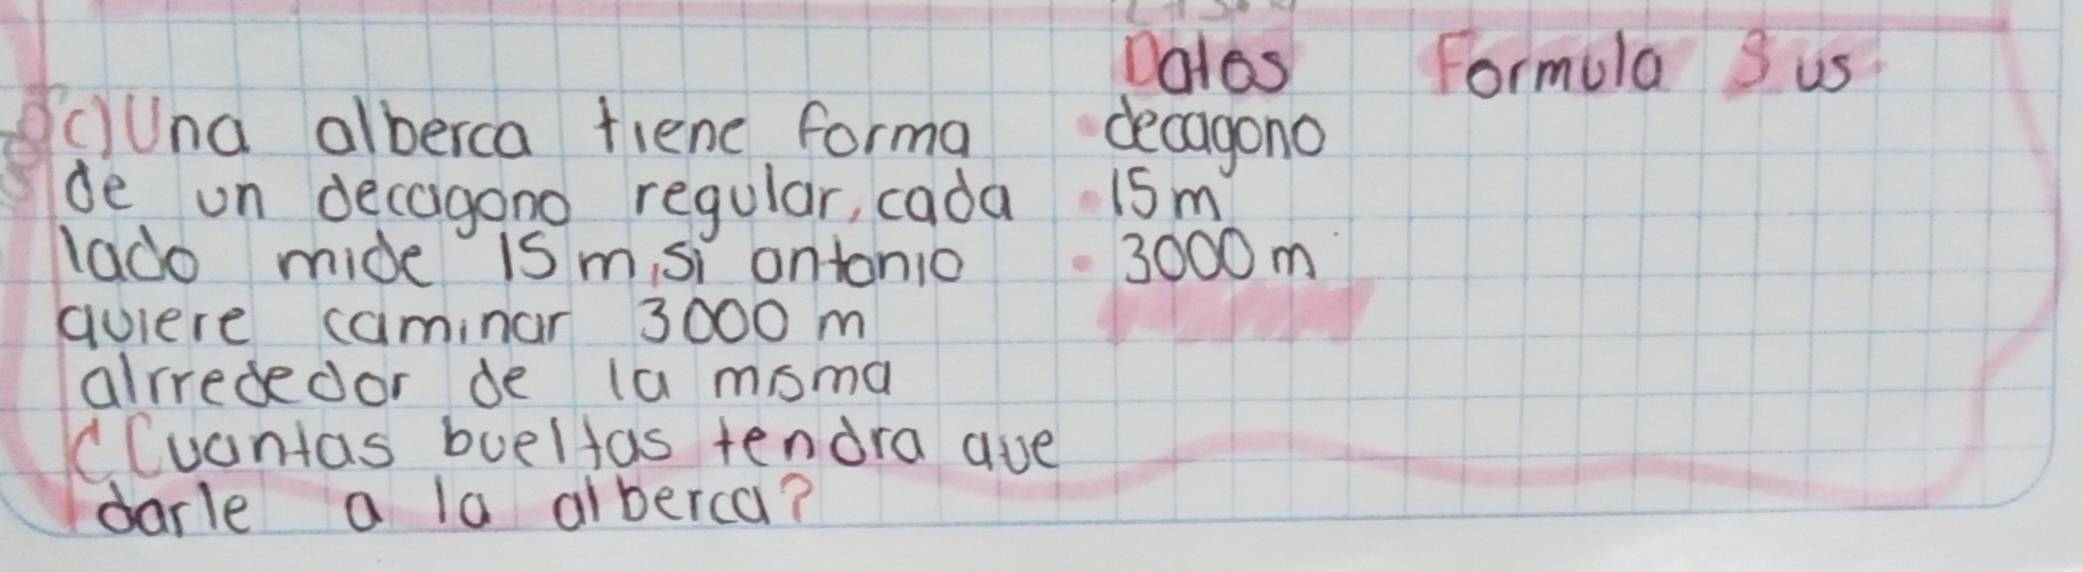 Datos Formula Sus
c) Una alberca tiene forma
de un decagono regular, cada
lado mide 15 m, si antonio
quiere caminar 3000 m
alrrededor de la misma
¿Cuantas bueltas tendra que
darle a la alberca?
• decagono
• 15 m
• 3000 m